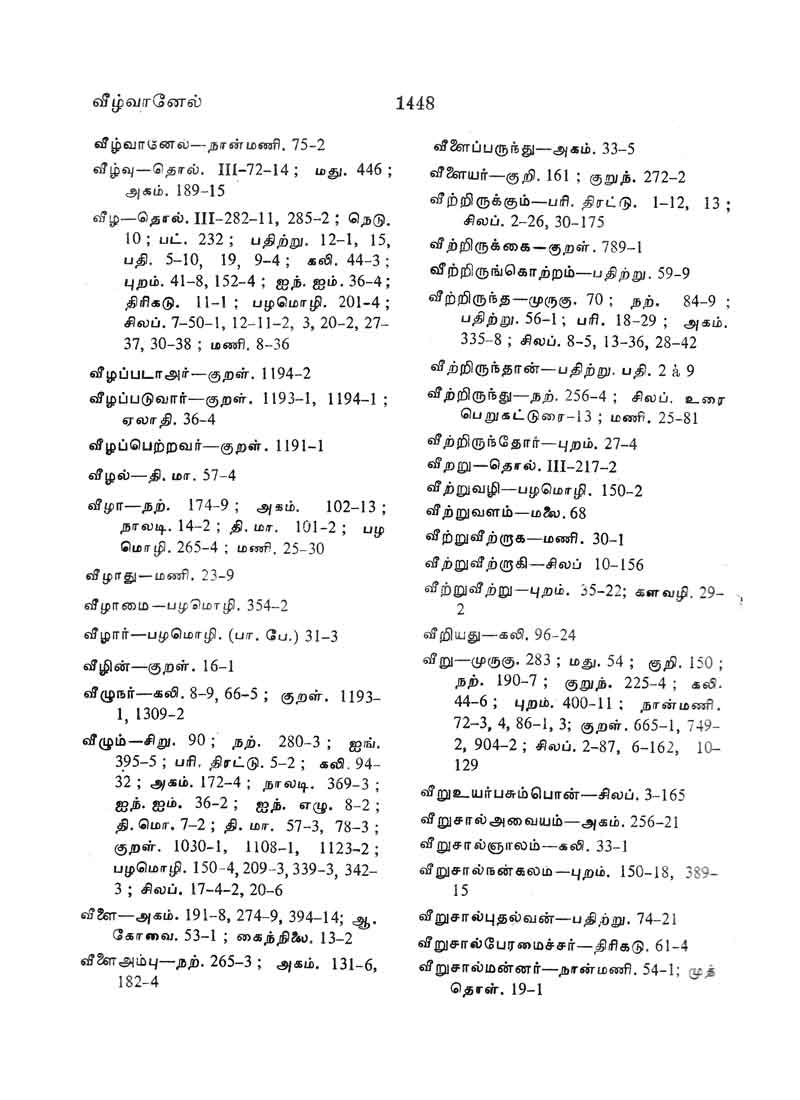 வீழ்வானேல்
1448
வீழ்வானேல்—நான்மணி. 75-2
வீழ்வு—தொல். III-72-14 ; மது. 446 ;
அகம். 189-15
வீழ—தொல். III-282-11, 285-2 ; நெடு.
10 ; பட். 232 ; பதிற்று. 12-1, 15,
பதி. 5-10, 19, 9-4 ; கலி. 44-3 ;
புறம். 41-8, 152-4 ; ஐந். ஐம். 36-4 ;
திரிகடு. 11-1 ; பழமொழி. 201-4 ;
சிலப். 7-50-1, 12-11-2, 3, 20-2, 27-
37, 30-38 ; மணி. 8-36
வீழப்படாஅர்—குறள். 1194-2
வீழப்படுவார்—குறள். 1193-1, 1194-1 ;
ஏலாதி. 36-4
வீழப்பெற்றவர்—குறள். 1191-1
வீழல்—தி. மா. 57-4
வீழா—நற். 174-9 ; அகம். 102-13 ;
நாலடி. 14-2 ; தி. மா. 101-2 ; பழ
மொழி. 265-4 ; மணி. 25-30
வீழாது—மணி. 23-9
வீழாமை—பழமொழி. 354-2
வீழார்—பழமொழி. (பா. பே.) 31-3
வீழின்—குறள். 16-1
வீழுநர்—கலி. 8-9, 66-5 ; குறள். 1193-
1, 1309-2
வீழும்—சிறு. 90 ; நற். 280-3 ; ஐங்.
395-5 ; பரி. திரட்டு. 5-2 ; கலி. 94-
32 ; அகம். 172-4 ; நாலடி. 369-3 ;
ஐந். ஐம். 36-2 ; ஐந். எழு. 8-2 ;
தி. மொ. 7-2 ; தி. மா. 57-3, 78-3 ;
குறள். 1030-1, 1108-1, 1123-2 ;
பழமொழி. 150-4, 209-3, 339-3, 342-
3 ; சிலப். 17-4-2, 20-6
வீளை—அகம். 191-8, 274-9, 394-14; ஆ.
கோவை. 53-1 ; கைந்நிலை. 13-2
வீளைஅம்பு—நற். 265-3 ; அகம். 131-6,
182-4
வீளைப்பருந்து—அகம். 33-5
வீளையர்—குறி. 161 ; குறுந். 272-2
வீற்றிருக்கும்—பரி. திரட்டு. 1-12, 13 ;
சிலப். 2-26, 30-175
வீற்றிருக்கை—குறள். 789-1
வீற்றிருங்கொற்றம்—பதிற்று. 59-9
வீற்றிருந்த—முருகு. 70 ; நற். 84-9 ;
பதிற்று. 56-1 ; பரி. 18-29 ; அகம்.
335-8 ; சிலப். 8-5, 13-36, 28-42
வீற்றிருந்தான்—பதிற்று. பதி. 2 à 9
வீற்றிருந்து—நற். 256-4 ; சிலப். உரை
பெறுகட்டுரை-13 ; மணி. 25-81
வீற்றிருந்தோர்—புறம். 27-4
வீறறு—தொல். III-217-2
வீற்றுவழி—பழமொழி. 150-2
வீற்றுவளம்—மலை. 68
வீற்றுவீற்றாக—மணி. 30-1
வீற்றுவீற்றாகி—சிலப் 10-156
வீற்றுவீற்று—புறம். 35-22; களவழி. 29-
2
வீறியது—கலி. 96-24
வீறு—முருகு. 283 ; மது. 54 ; குறி. 150 ;
நற். 190-7 ; குறுந். 225-4 ; கலி.
44-6 ; புறம். 400-11 ; நான்மணி.
72-3, 4, 86-1, 3; குறள். 665-1, 749-
2, 904-2 ; சிலப். 2-87, 6-162, 10-
129
வீறுஉயர்பசும்பொன்—சிலப். 3-165
வீறுசால்அவையம்—அகம். 256-21
வீறுசால்ஞாலம்—கலி. 33-1
வீறுசால்நன்கலம—புறம். 150-18, 389-
15
வீறுசால்புதல்வன்—பதிற்று. 74-21
வீறுசால்பேரமைச்சர்—திரிகடு. 61-4
வீறுசால்மன்னர்—நான்மணி. 54-1; முத்
தொள். 19-1